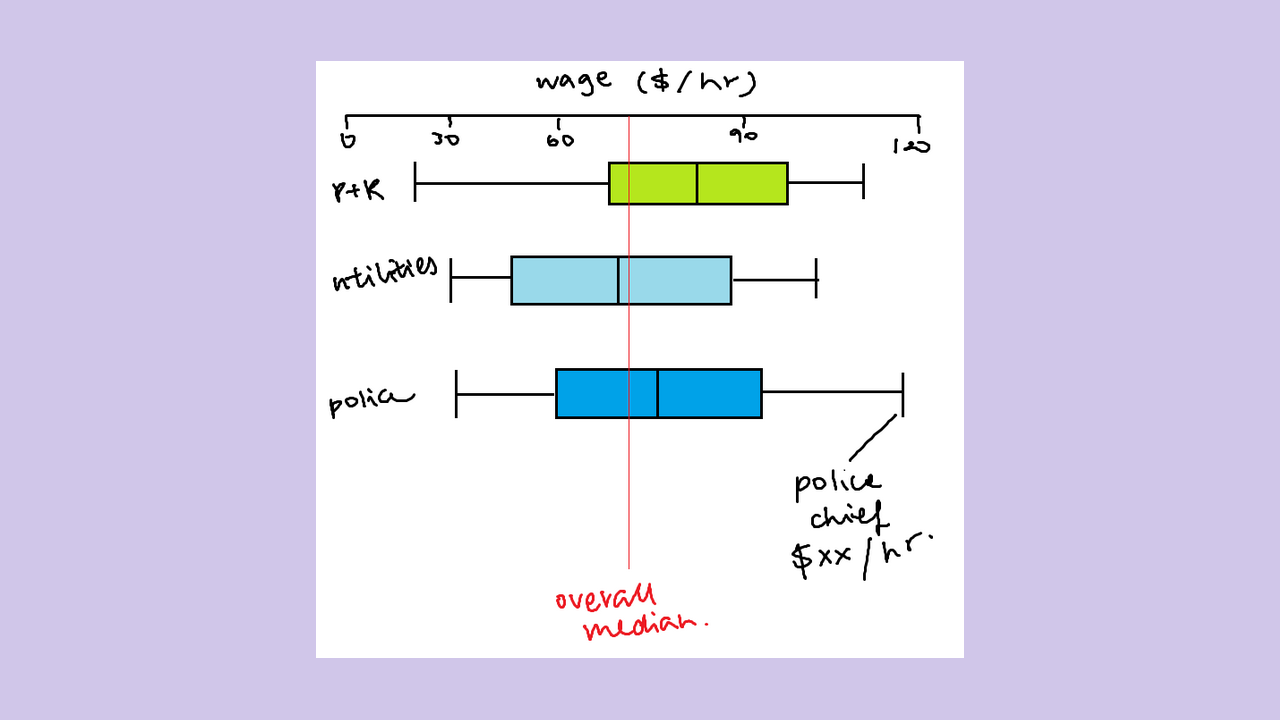 wage ($/hr)
0 30 60 90 120
P+R
utilities
police
police
chief
$xx/hr.
overall
median.